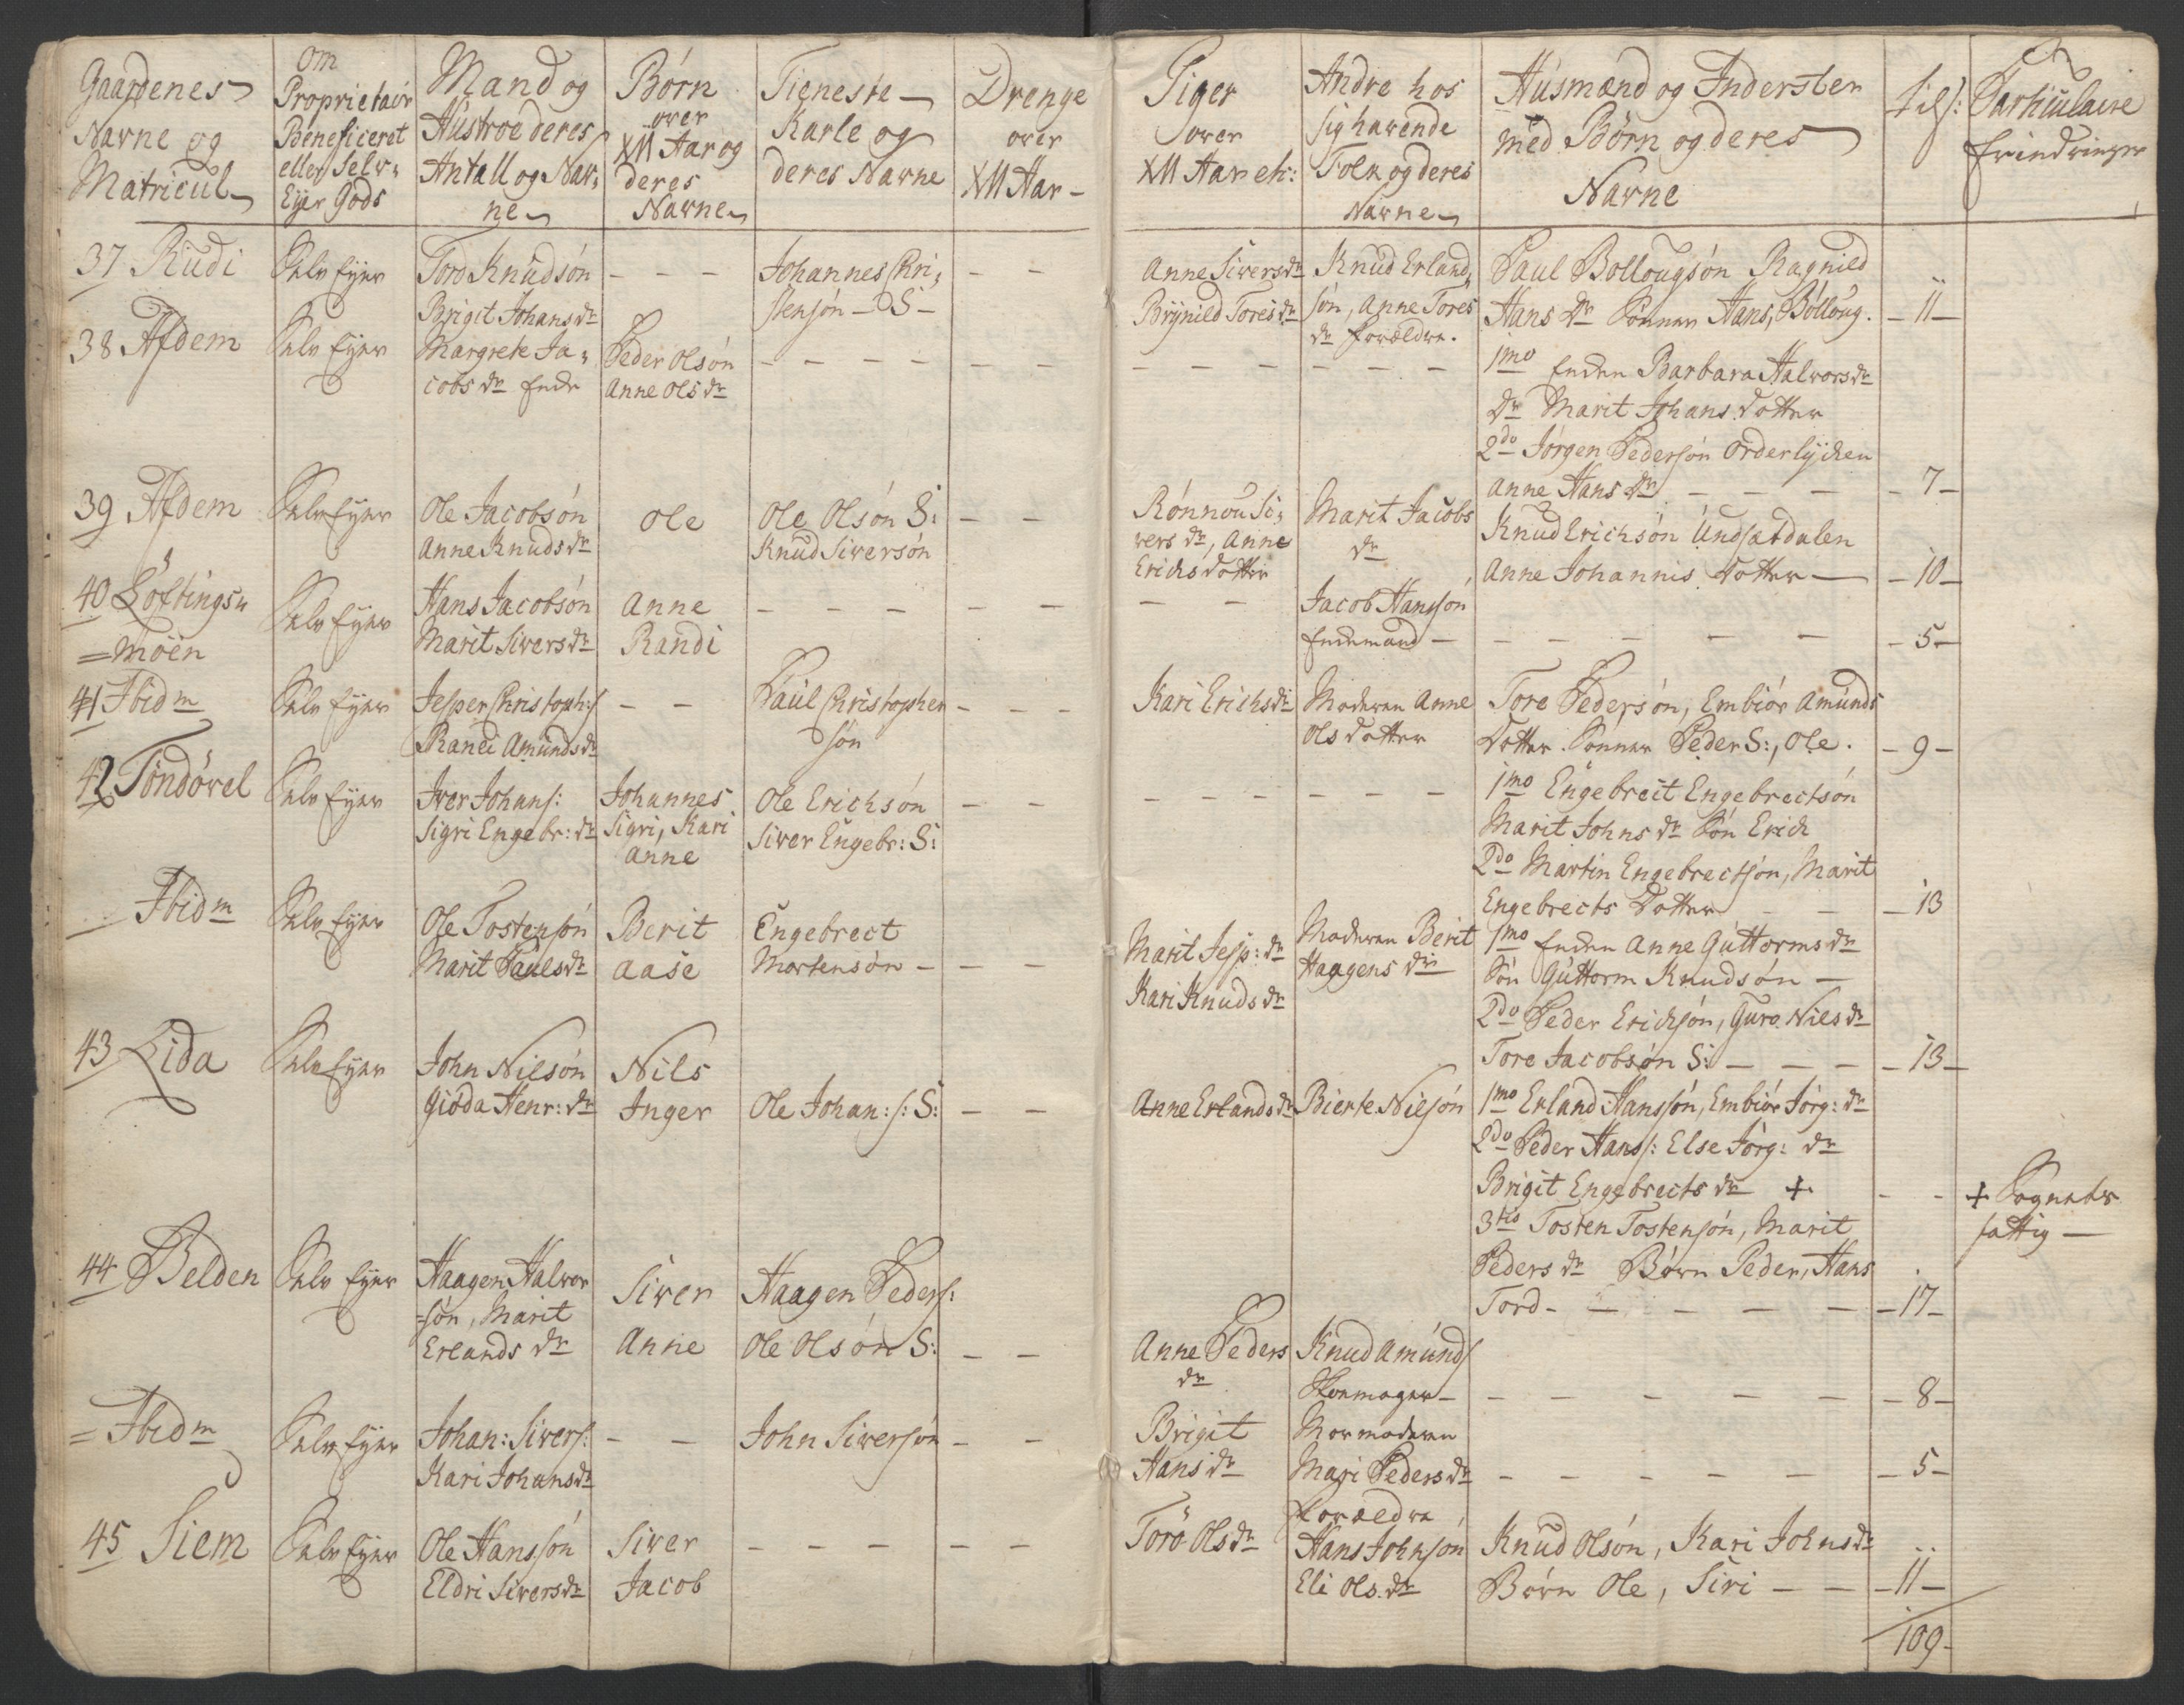 Gaardenes
Navne og
Matricul
Om
Proprietair
Beneficeret
eller Selv-
Eyer Gods
Mand og
Hustroe deres
Antall og Nav-
ne
Børn
over
XII Aar og
deres
Navne
Tieneste
Karle og
deres Navne
Drenge
over
XII Aar -
Piger
over
XII Aar etc:
Andre hos
sig havende
Folk og deres
Navne
Husmænd og Inderster
med Børn og deres
Navne
Particulaire
Erindringer
37 Rudi
Selv Eyer
Tord Knudsøn
Brigit Johans dr
- - -
Johannes Chri-
stensøn - S -
- -
Anne Sivers dr
Brynild Tores dr
Knud Erland-
søn, Anne Tores
dr Forældre.
Paul Bollougsøn Ragnild
Hans Dr Sønner Hans, Bolloug.
- 11 -
38 Afdem
Selv Eyer
Margrete Ja-
cobs dr Enke
Peder Olsøn
Anne Ols dr
- - - -
- -
- - -
- - -
1mo Enken Barbara Halvors dr
Dr Marit Johans Dotter
2do Jørgen Pedersøn Orderlychen
Anne Hans Dr - - -
- 7 -
39 Afdem
Selv Eyer
Ole Jacobsøn
Anne Knuds dr
Ole
Ole Olsøn S:
Knud Siversøn
- -
Rønnou Si-
vers dr, Anne
Erichs dotter
Marit Jacobs
dr
Knud Erichsøn Undsætdalen
Anne Johannis Dotter -
- 10 -
40 Løftings-
=moen
Selv Eyer
Hans Jacobsøn
Marit Sivers dr
Anne
Randi
- - -
- -
- -
Jacob Hansøn
Enkemand -
- - - - -
- 5 -
41 Ibidm
Selv Eyer
Jesper Christoph:s
Randi Amunds dr
- -
Paul Christopher
søn
- - -
Kari Erichs dr
Moderen Anne
Ols dotter
Tore Pedersøn, Embiør Amunds
Dotter. Sønner Peder S:, Ole.
- 9 -
42 Tondøvel
Selv Eyer
Iver Johans:
Sigri Engebr: dr
Johannes
Sigri, Kari
Anne
Ole Erichsøn
Siver Engebr: S:
- -
- - -
- - -
1mo Engebrect Engebrectsøn
Marit Johns dr Søn Erich
2do Martin Engebrectsøn, Marit
Engebrects Dotter - -
- 13
Ibidm
Selv Eyer
Ole Tostensøn
Marit Pauls dr
Berit
Aase
Engebrect
Mortensøn -
- -
Marit Jesp: dr
Kari Knuds dr
Moderen Berit
Haagens dr
1mo Enken Anne Guttorms dr
Søn Guttorm Knudsøn -
2do Peder Erichsøn, Guro Niels dr
Tore Jacobsøn S: - - -
- 13 -
43 Lida
Selv Eyer
John Nilsøn
Giøda Henr: dr
Nils
Inger
Ole Johan:s: S:
- -
Anne Erlands dr
Bierte Nilsøn
1mo Erland Hanssøn, Embiør Jørg: dr
2do Peder Hans: Else Jørg: dr
Brigit Engebrects dr +
- -
+ Sognets
fattig -
3tio Tosten Tostensøn, Marit
Peders dr Børn Peder, Hans
Tord - - - - -
- 17 -
44 Belden
Selv Eyer
Haagen Halvor
=søn, Marit
Erlands dr
Siver
Anne
Haagen Peders:
Ole Olsøn S:
- -
Anne Peders
dr
Knud Amunds
Skomager -
- - - - -
- 8 -
= Ibidm
Selv Eyer
Johan: Sivers:
Kari Johans dr
- -
John Siversøn
- -
Brigit
Hans dr
Mormoderen
Mari Peders dr
- - - - -
- 5 -
45 Siem
Selv Eyer
Ole Hanssøn
Eldri Sivers dr
Siver
Jacob
- - - -
- -
Torø Ols dr
Forældre
Hans Johnsøn
Eli Ols dr
Knud Olsøn, Kari Johns dr
Børn Ole, Siri - -
- 11 -
109 -